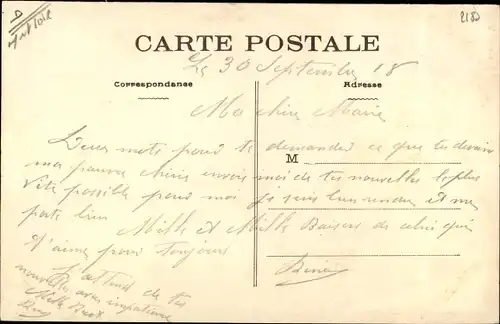 2183
CARTE POSTALE
Le 30 Septembre 18
Correspondance
Adresse
Ma chère Marie
Deux mots pour te demander ce que tu deviens
M
ma pauvre chérie envois moi de tes nouvelles le plus
Vite possible pour moi je suis bien rendu et me
porte bien Mille et Mille Baisers de celui qui
t'aime pour toujours
J'attend de tes
nouvelles avec impatience
Mille